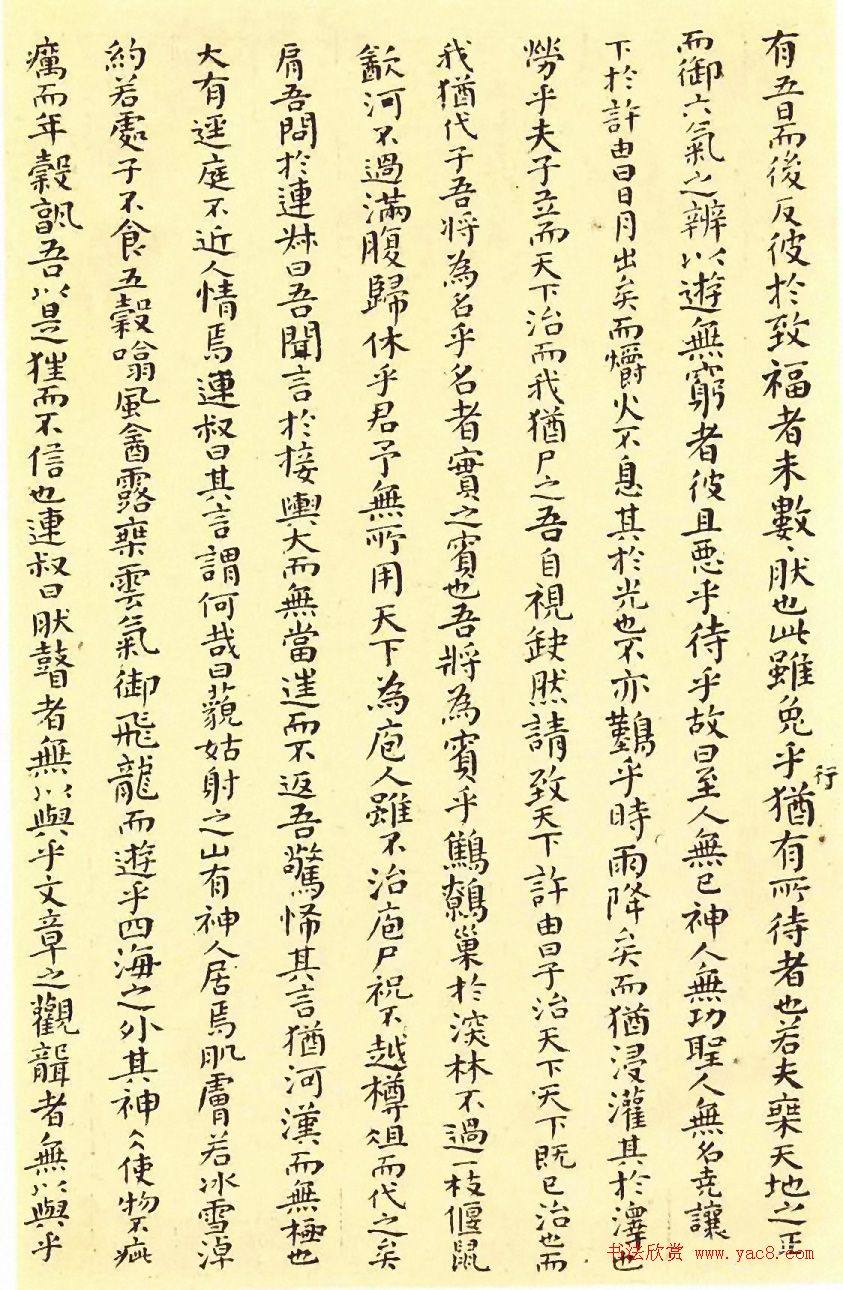 有五日而後反彼於致福者未數數然也此雖免乎行猶有所待者也若夫乗天地之正
而御六氣之辨以遊無窮者彼且惡乎待乎故曰至人無己神人無功聖人無名堯讓
下於許由曰日月出矣而爝火不息其於光也不亦難乎時雨降矣而猶浸灌其於澤也
勞乎夫子立而天下治而我猶尸之吾自視缺然請致天下許由曰子治天下天下既已治也而
我猶代子吾將為名乎名者實之賓也吾將為賓乎鷦鷯巢於深林不過一枝偃鼠
飲河不過滿腹歸休乎君予無所用天下為庖人雖不治庖尸祝不越樽俎而代之矣
肩吾問於連叔曰吾聞言於接輿大而無當逞而不返吾驚怖其言猶河漢而無極也
大有逕庭不近人情焉連叔曰其言謂何哉曰藐姑射之山有神人居焉肌膚若冰雪淖
約若處子不食五穀噏風飲露乗雲氣御飛龍而遊乎四海之外其神〻使物不疵
癘而年穀熟吾以是狂而不信也連叔曰然瞽者無以與乎文章之觀聾者無以與乎
书法欣赏 www.yac8.com